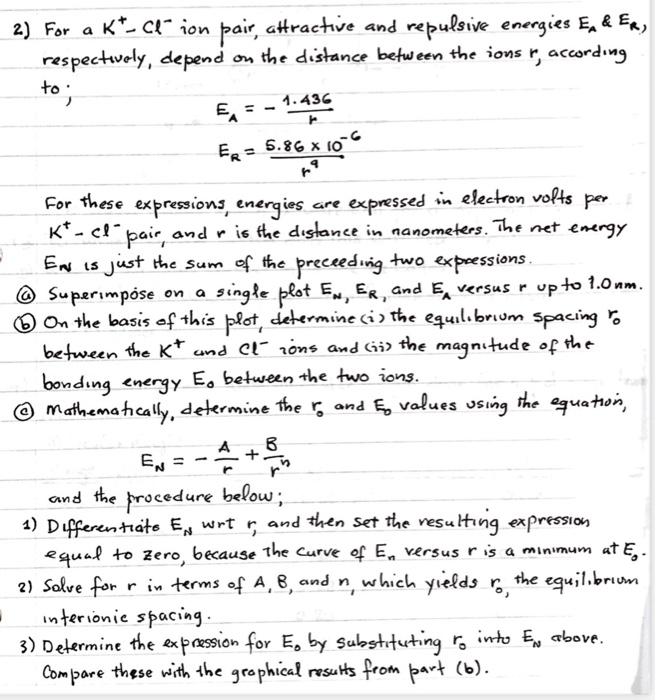 2) For a K⁺- Cl⁻ ion pair, attractive and repulsive energies E_A & E_R,
respectively, depend on the distance between the ions r, according
to;
E_A = - 1.436 / r
E_R = 5.86 x 10⁻⁶ / r⁹
For these expressions, energies are expressed in electron volts per
K⁺ - Cl⁻ pair, and r is the distance in nanometers. The net energy
E_N is just the sum of the preceeding two expressions.
ⓐ Superimpose on a single plot E_N, E_R, and E_A versus r up to 1.0 nm.
ⓑ On the basis of this plot, determine (i) the equilibrium spacing r₀
between the K⁺ and Cl⁻ ions and (ii) the magnitude of the
bonding energy E₀ between the two ions.
ⓒ Mathematically, determine the r₀ and E₀ values using the equation,
E_N = - A/r + B/rⁿ
and the procedure below;
1) Differentiate E_N wrt r, and then set the resulting expression
equal to zero, because the curve of E_n versus r is a minimum at E₀.
2) Solve for r in terms of A, B, and n, which yields r₀, the equilibrium
interionic spacing.
3) Determine the expression for E₀ by substituting r₀ into E_N above.
Compare these with the graphical results from part (b).